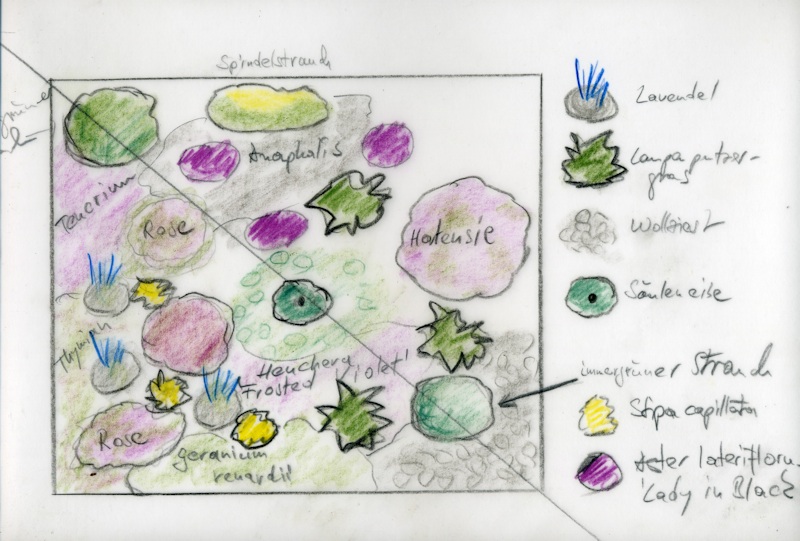 Spindelstrauch
Anaphalis
Teucrium
Rose
Hortensie
Thymian
Heuchera
Frosted Violet'
Rose
geranium
renardii
Lavendel
Lampenputzer-
gras
Wollziest
Säuleneibe
immergrüner Strauch
Stipa capillata
Aster lateriflorus
'Lady in Black